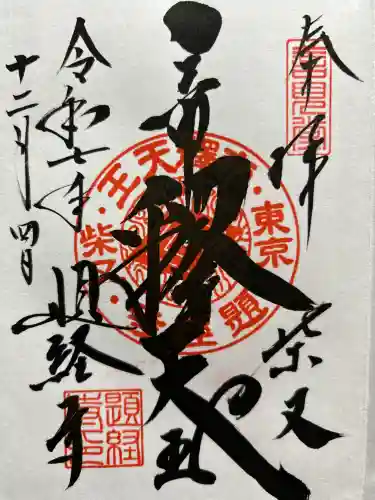 奉拝
柴又
帝釈天王
令和七年
十二月四日
題経寺
東京
柴又
題経寺